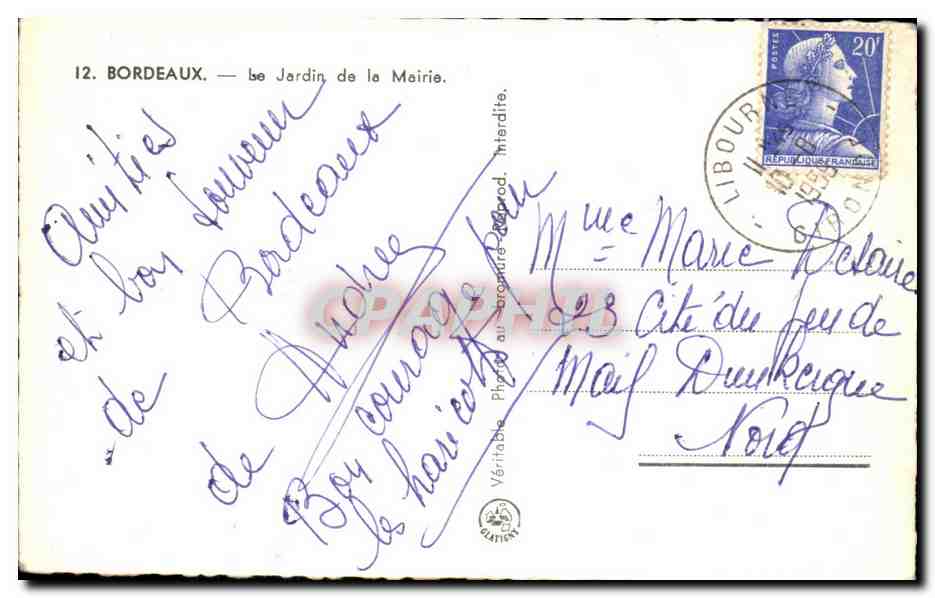 12. BORDEAUX. — Le Jardin de la Mairie.
Amitiés
et bon souvenir
de Bordeaux
de Andrée
Bon courage pour
les haricots
Véritable Photo au bromure - Reprod. Interdite.
GLATIGNY
CPAPHIL
POSTES
20F
REPUBLIQUE FRANÇAISE
LIBOURNE
GIRONDE
Mme Marie Desaire
23 Cité du Jeu de
Mail Dunkerque
Nord